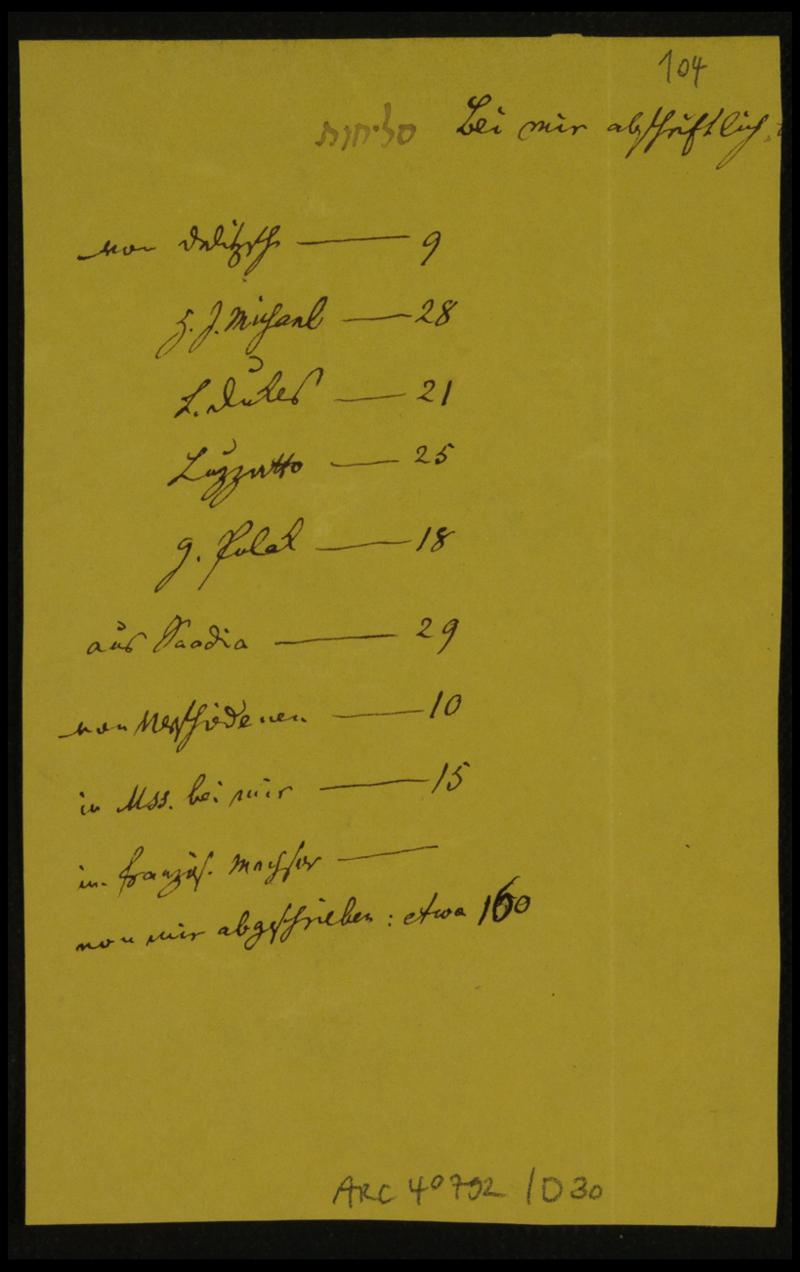 104
סליחות Bei mir abschriftlich:
von Delitzsch — 9
H. J. Michael — 28
L. Dukes — 21
Luzzatto — 25
G. Polak — 18
aus Saadia — 29
von Verschiedenen — 10
in Mss. bei mir — 15
im französ. Machsor —
von mir abgeschrieben: etwa 160
ARC 4° 792 / D 30